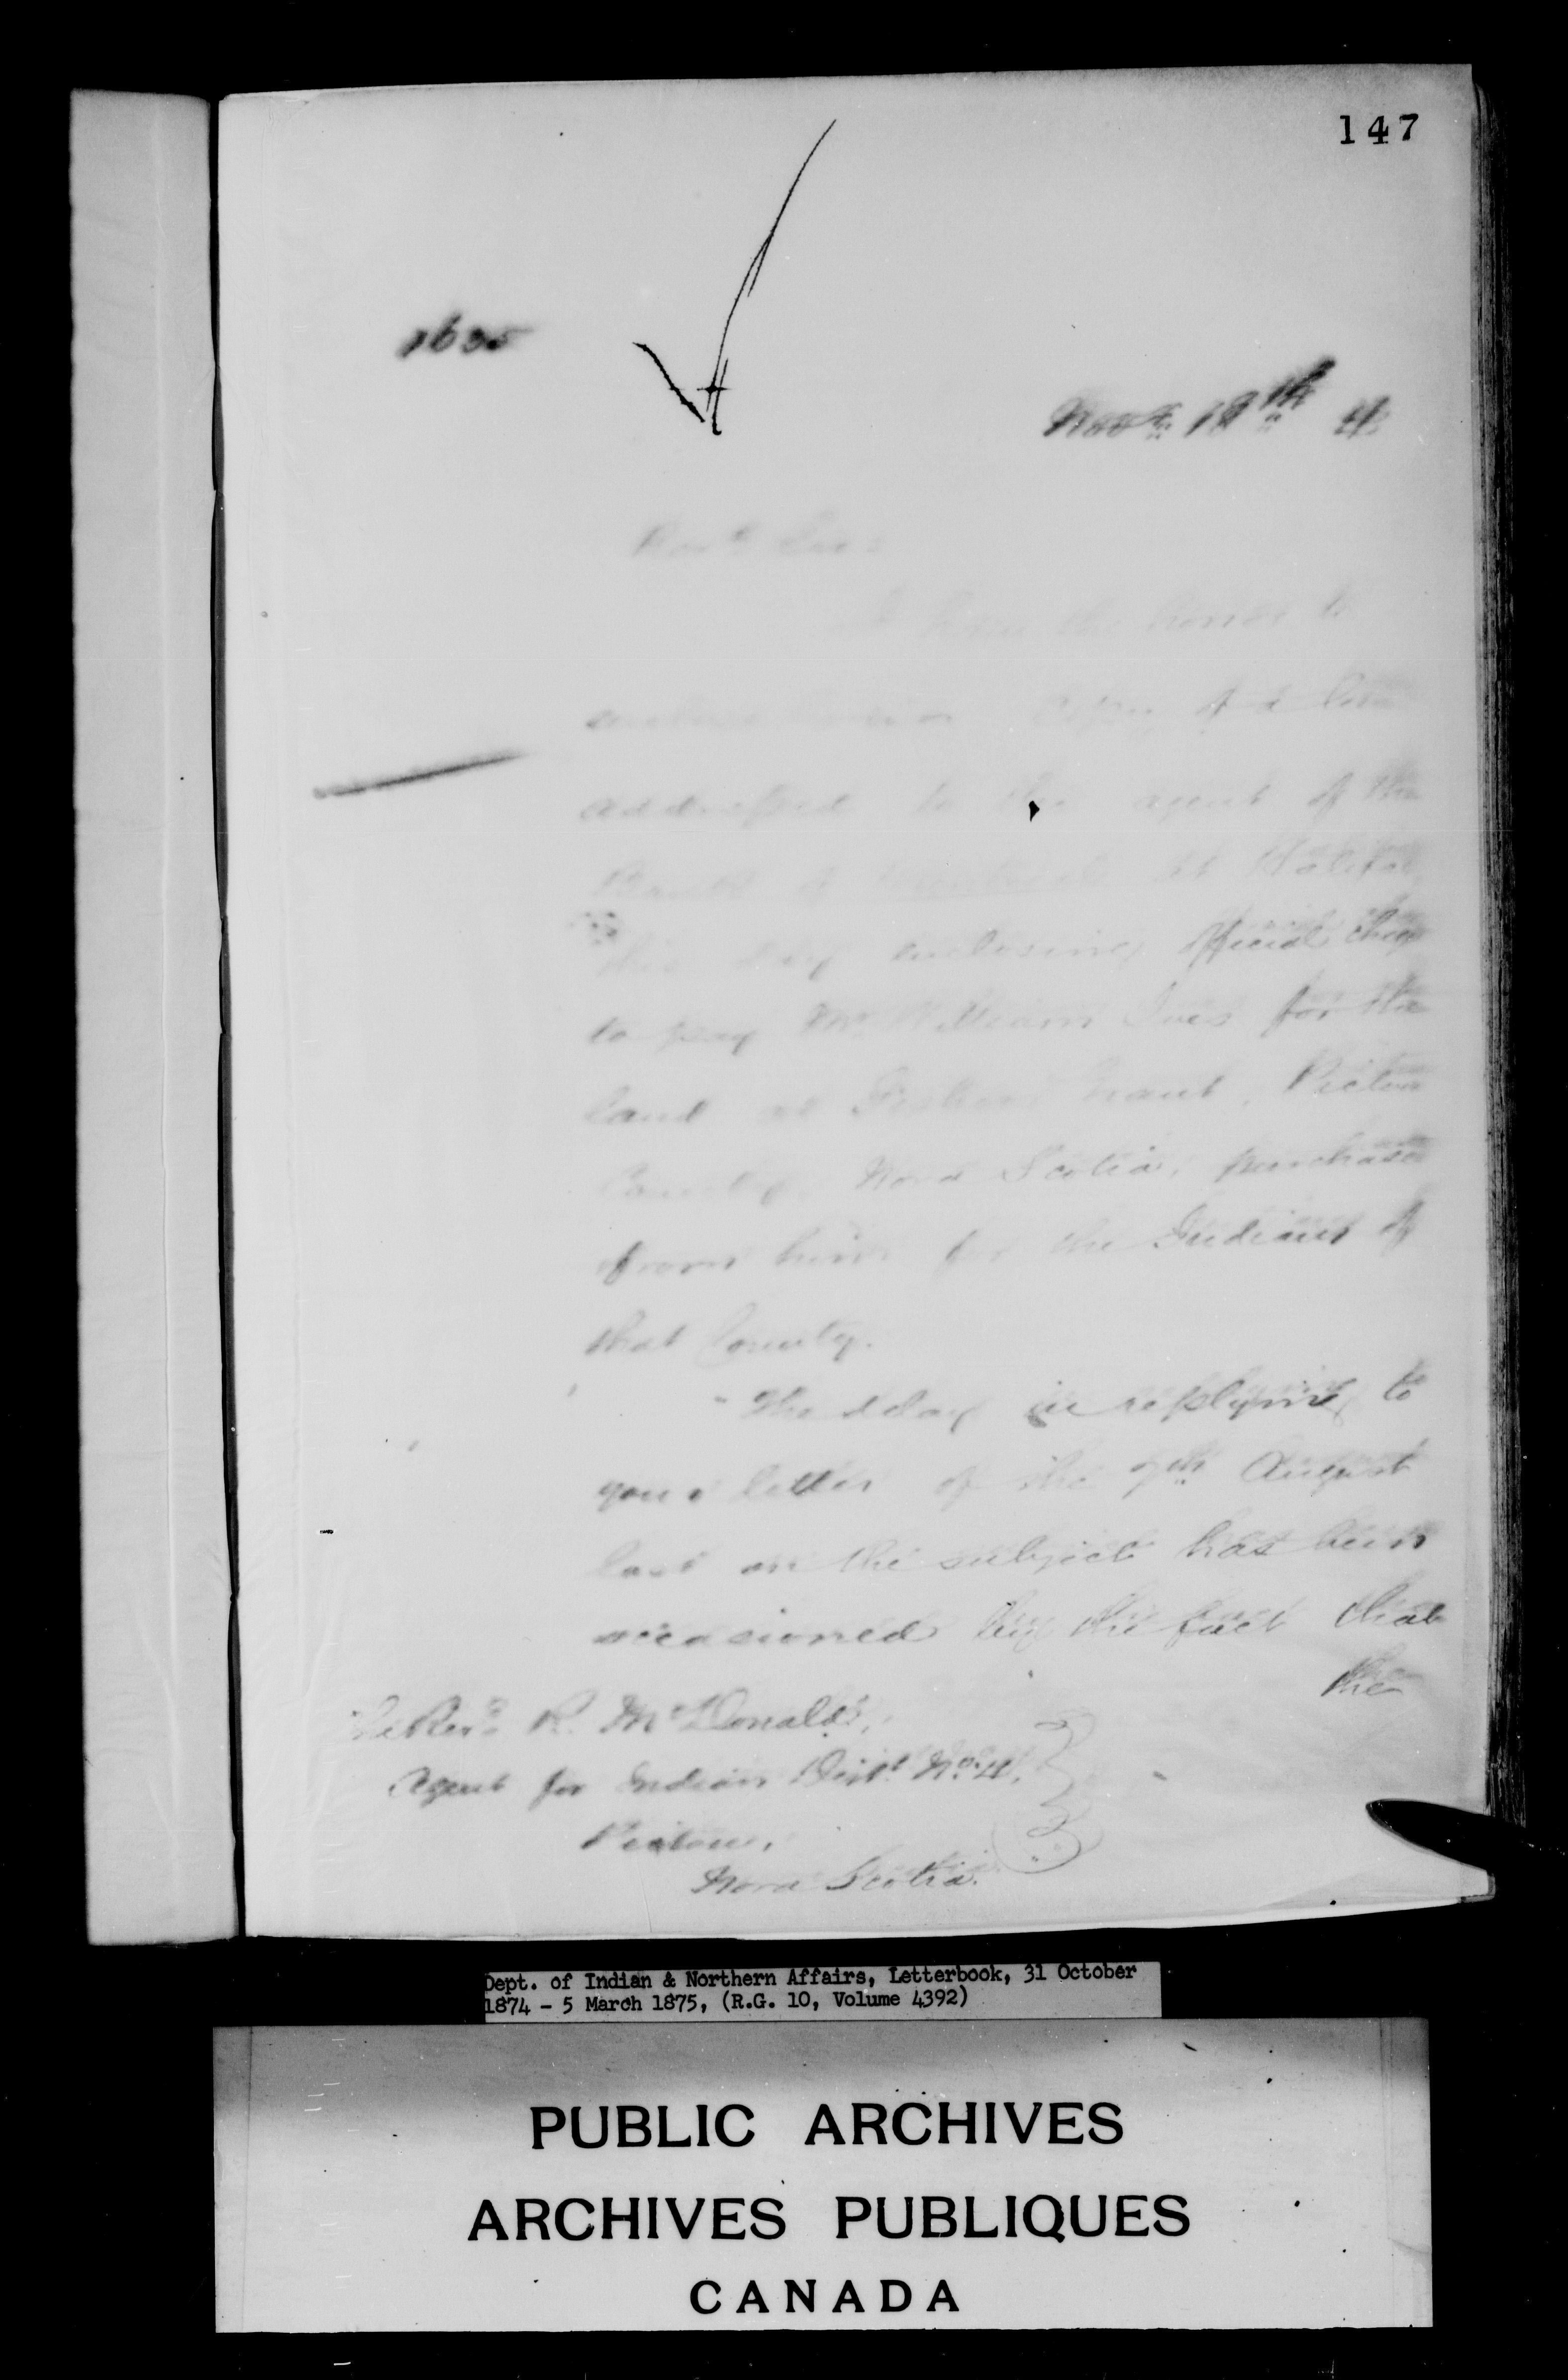 147
1635
Novr. 19th 4
Revd Sir:
I have the honor to
enclose copy of a
addressed to the agent of the
Bank of Montreal at Halifax
this day enclosing official
to pay Mr William Ives for the
land at Fishers Grant, Pictou
County Nova Scotia, purchased
from him for the Indians of
that County.
The delay in replying to
your letter of the 7th August
last on the subject has been
occasioned by the fact that
the
The Revd R. McDonald,
Agent for Indian Dist. No. 4,
Pictou,
Nova Scotia.
Dept. of Indian & Northern Affairs, Letterbook, 31 October
1874 - 5 March 1875, (R.G. 10, Volume 4392)
PUBLIC ARCHIVES
ARCHIVES PUBLIQUES
CANADA